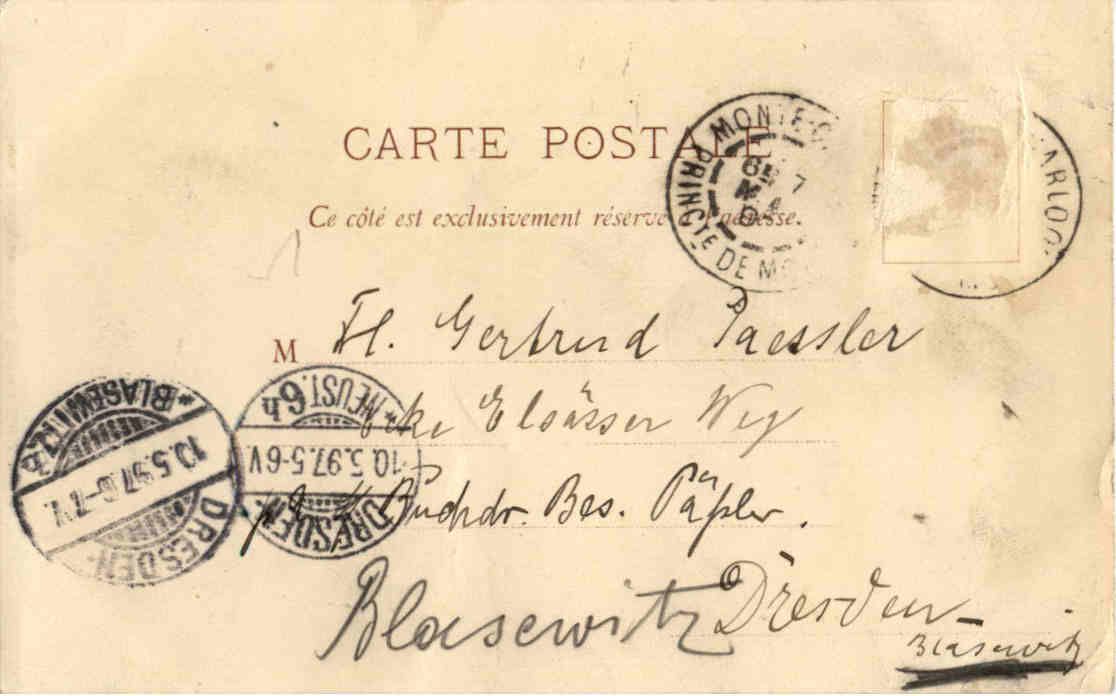 CARTE POSTALE
Ce côté est exclusivement réservé à l'adresse.
MONTE-C
PRINCTE DE MO
7
ARLO
M Fl. Gertrud Paessler
Ecke Elsässer Weg
Buchdr. Bes. Päßler.
Blasewitz Dresden-
Blasewitz
* BLASEWITZ *
10.5.97.6-7V.
DRESDEN-
* NEUST. 6h
10.5.97.5-6V
DRESDEN-